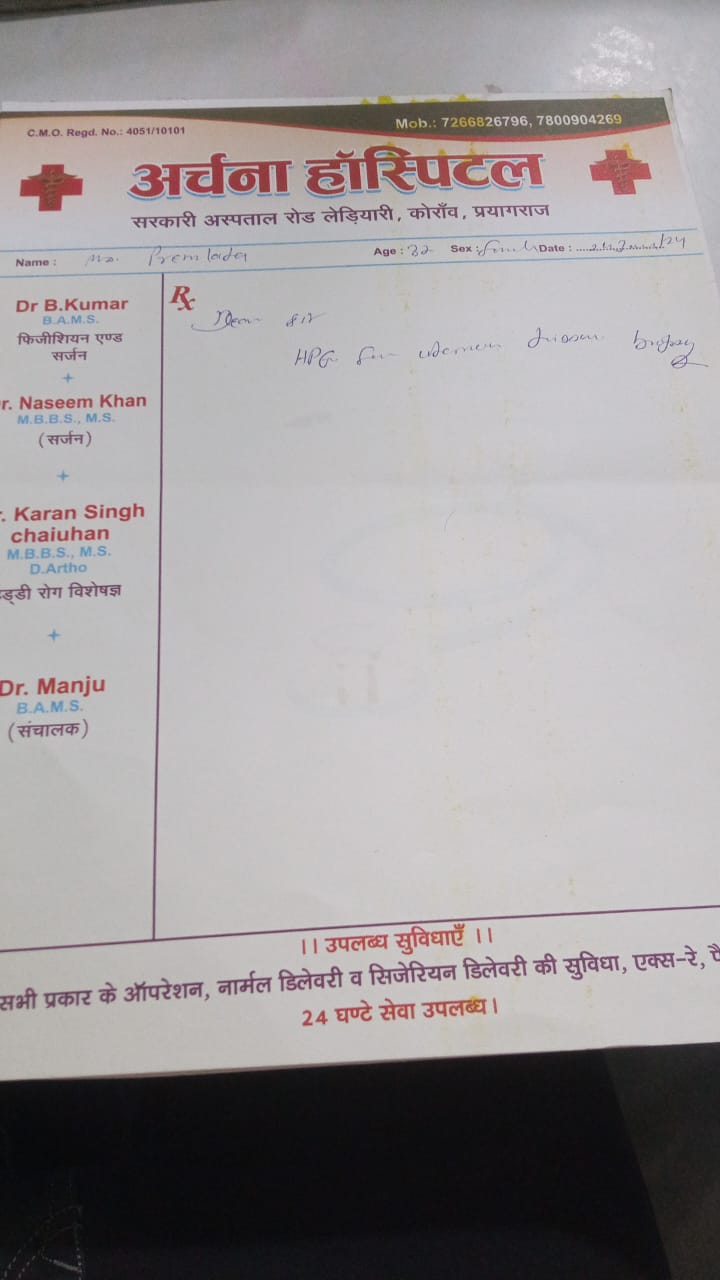 C.M.O. Regd. No.: 4051/10101
Mob.: 7266826796, 7800904269
अर्चना हॉस्पिटल
सरकारी अस्पताल रोड लेड़ियारी, कोराँव, प्रयागराज
Name : Premlata
Age : 32 Sex : Date :
Rx
Dear sir
HPE for
Dr B.Kumar
B.A.M.S.
फिजीशियन एण्ड
सर्जन
r. Naseem Khan
M.B.B.S., M.S.
(सर्जन)
. Karan Singh
chaiuhan
M.B.B.S., M.S.
D.Artho
ड्डी रोग विशेषज्ञ
Dr. Manju
B.A.M.S.
(संचालक)
।। उपलब्ध सुविधाएँ ।।
सभी प्रकार के ऑपरेशन, नार्मल डिलेवरी व सिजेरियन डिलेवरी की सुविधा, एक्स-रे,
24 घण्टे सेवा उपलब्ध।